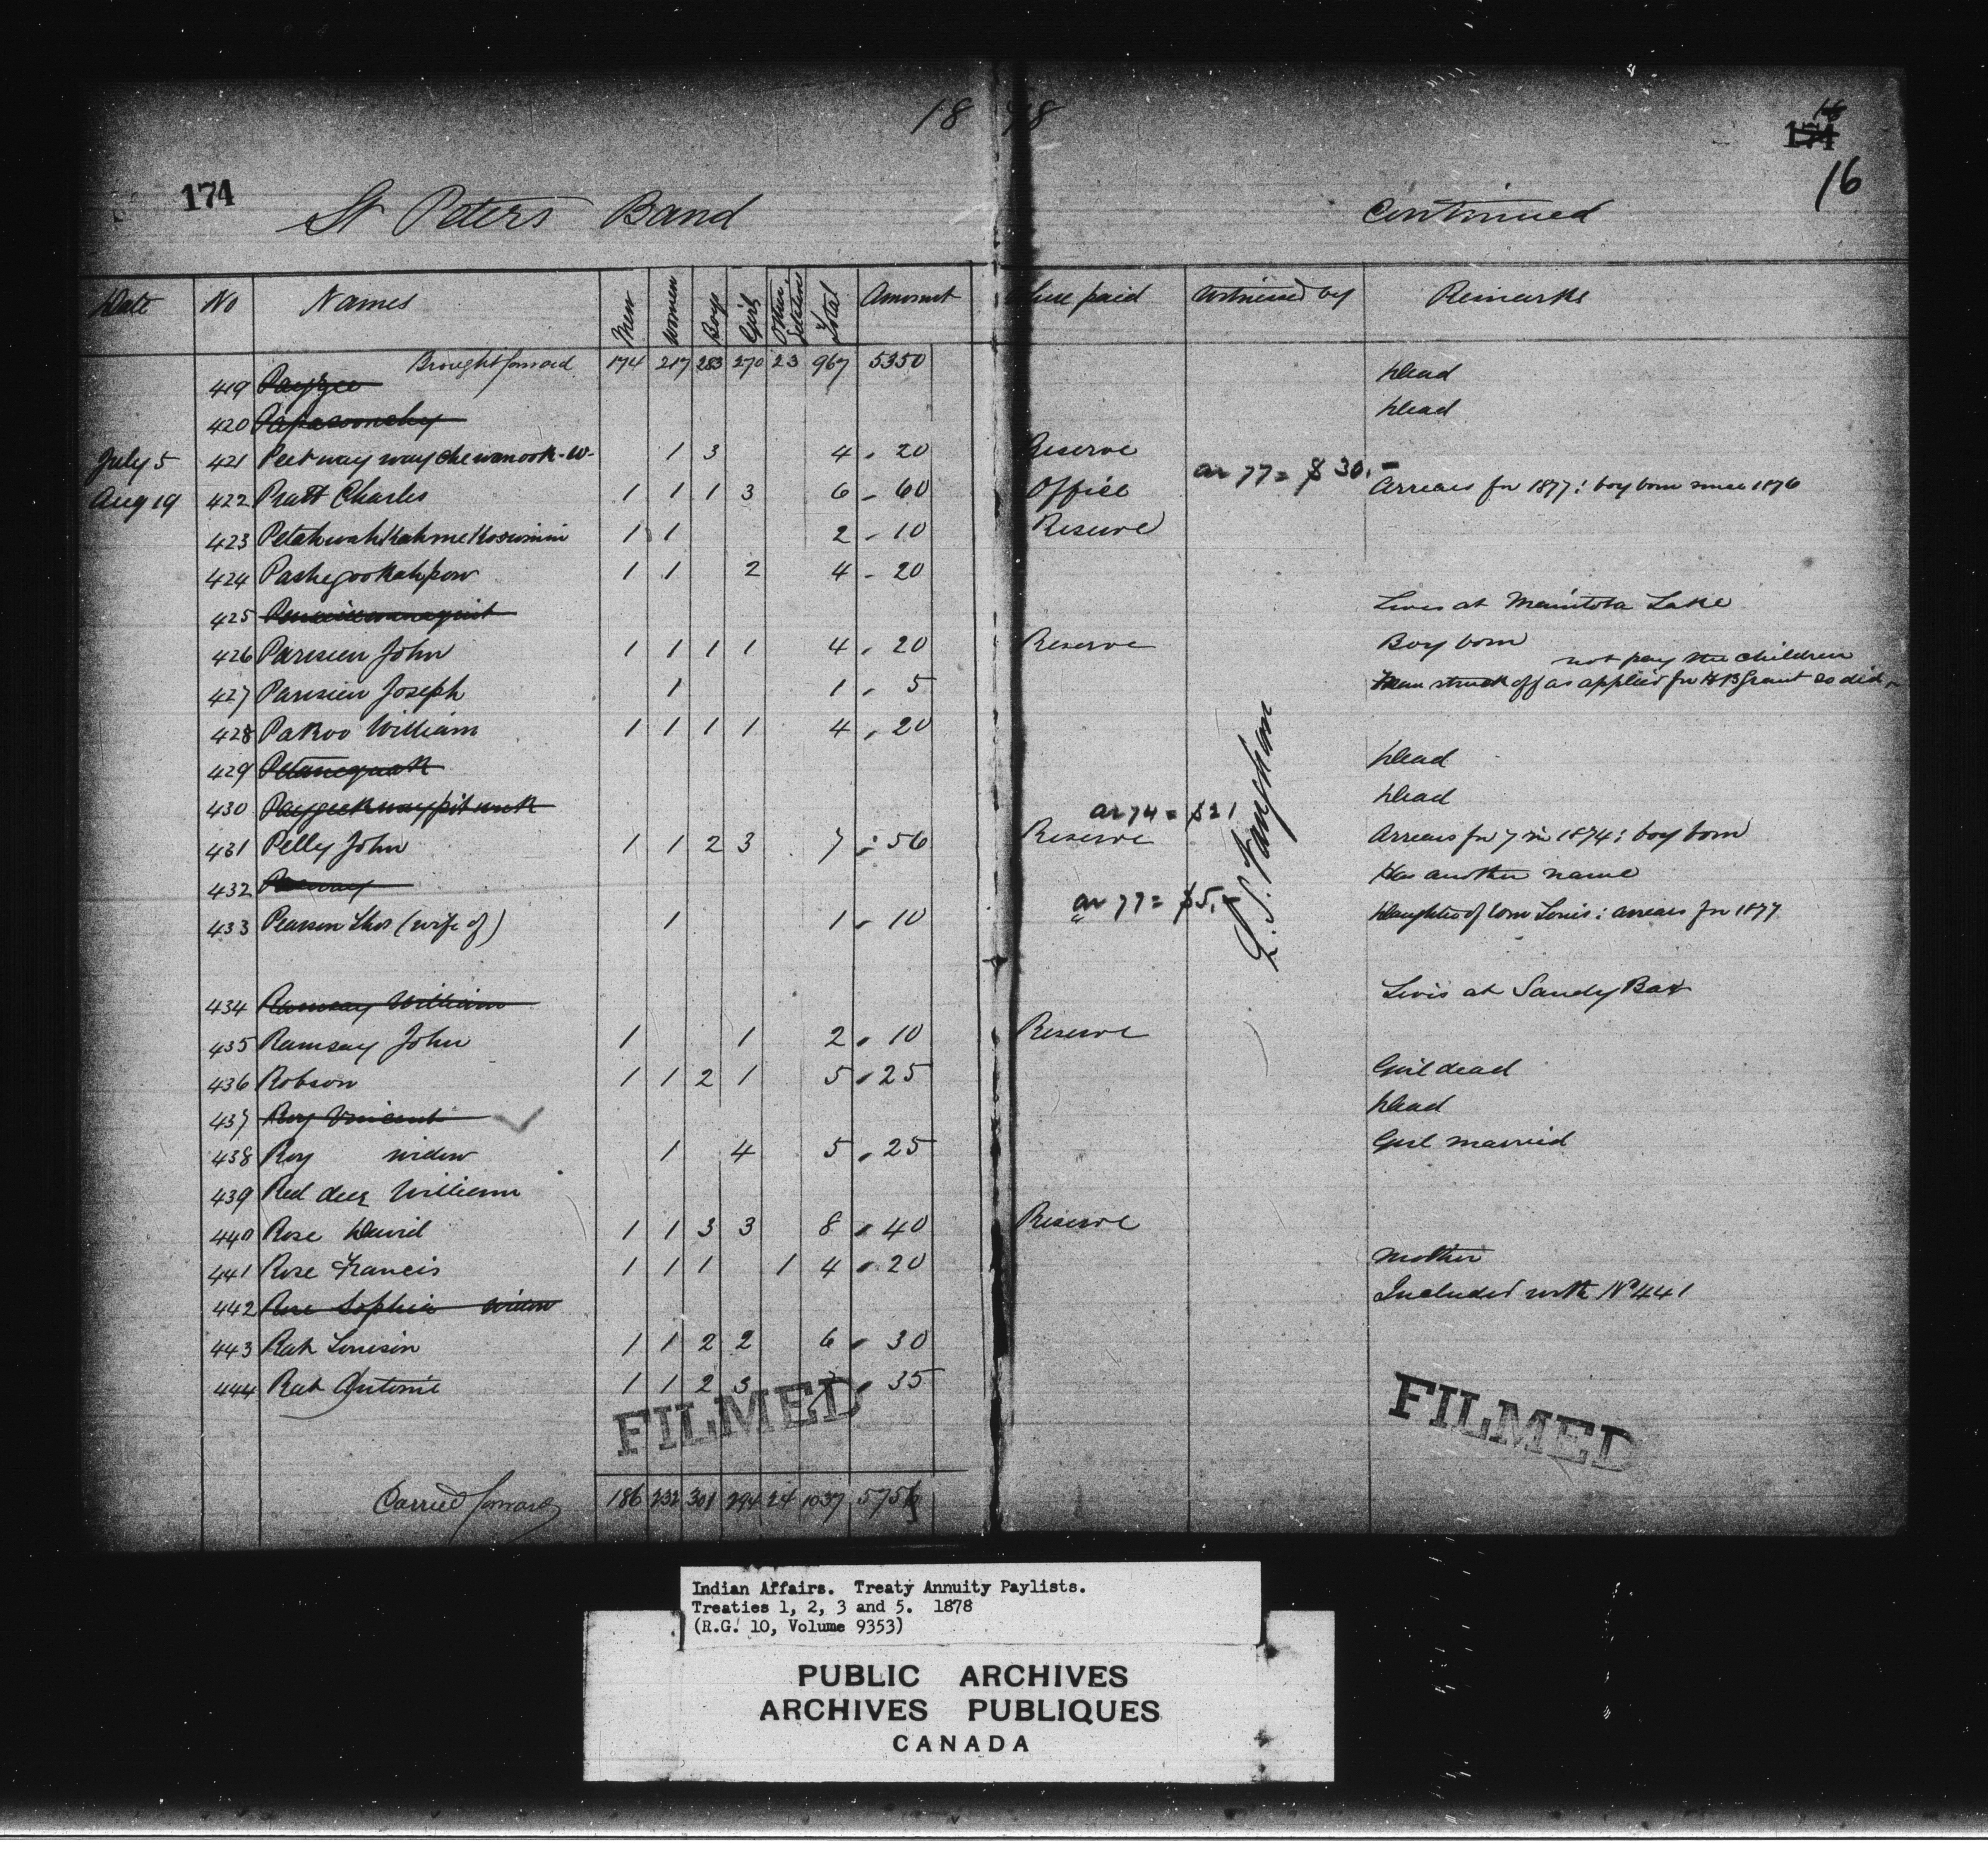 18 78
174
174
16
16
St Peters Band Continued
Date No Names Men Women Boys Girls Other Total Amount Where paid Witnessed by Remarks
Brought forward 174 217 283 270 23 967 5350
419 Dead
420 Dead
July 5 421 1 3 4 20 Reserve
ar 77 = $30.-
Aug 19 422 Pratt Charles 1 1 1 3 6 60 Office Arrears for 1877: boy born since 1876
423 1 1 2 10 Reserve
424 Pashegookahpow 1 1 2 4 20
425 Lives at Manitoba Lake
426 Parisien John 1 1 1 1 4 20 Reserve Boy born
not pay the children
427 Parisien Joseph 1 1 5 Man struck off as applied for HB Grant so did
428 Pakoo William 1 1 1 1 4 20
429 Petanequak Dead
430 Dead
ar 74 = $21
431 Pelly John 1 1 2 3 7 56 Reserve Arrears for 7 in 1874: boy born
432 Has another name
ar 77 = $5.-
433 Pearson Thos (wife of) 1 1 10 " Daughter of Wm Louis: arrears for 1877
434 Ramsay William Lives at Sandy Bar
435 Ramsay John 1 1 2 10 Reserve
436 Robson 1 1 2 1 5 25 Girl dead
437 Roy Vincent Dead
438 Roy widow 1 4 5 25 Girl married
439 Red deer William
440 Rose David 1 1 3 3 8 40 Reserve
441 Rose Francis 1 1 1 1 4 20 Mother
442 Rose Sophia widow Included with No 441
443 Rat Louison 1 1 2 2 6 30
444 Rat Antoine 1 1 2 3 7 35
FILMED
FILMED
Carried forward 186 232 301 294 24 1037 5756
Indian Affairs. Treaty Annuity Paylists.
Treaties 1, 2, 3 and 5. 1878
(R.G. 10, Volume 9353)
PUBLIC ARCHIVES
ARCHIVES PUBLIQUES
CANADA